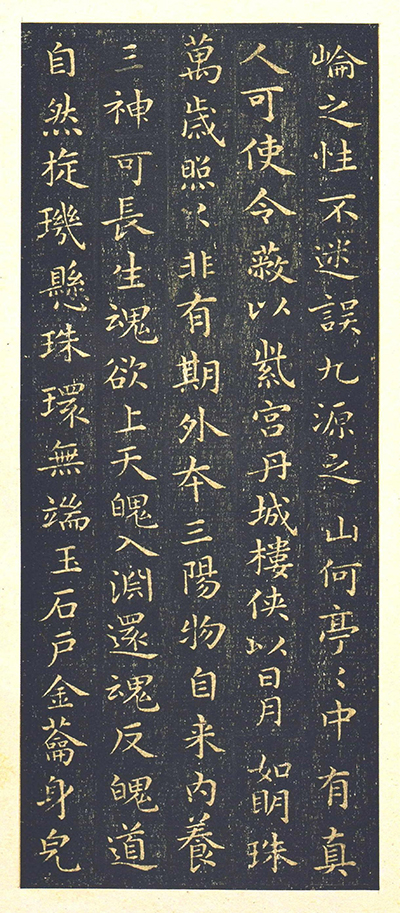 崘之性不迷誤九源之山何亭〻中有真
人可使令蔽以紫宮丹城樓俠以日月如明珠
萬歲照〻非有期外夲三陽物自来内養
三神可長生魂欲上天魄入淵還魂反魄道
自然挻璣懸珠環無端玉石戶金蘥身皃